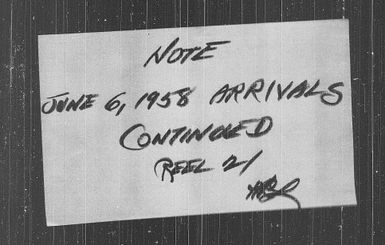 NOTE
JUNE 6, 1958 ARRIVALS
CONTINUED
REEL 21